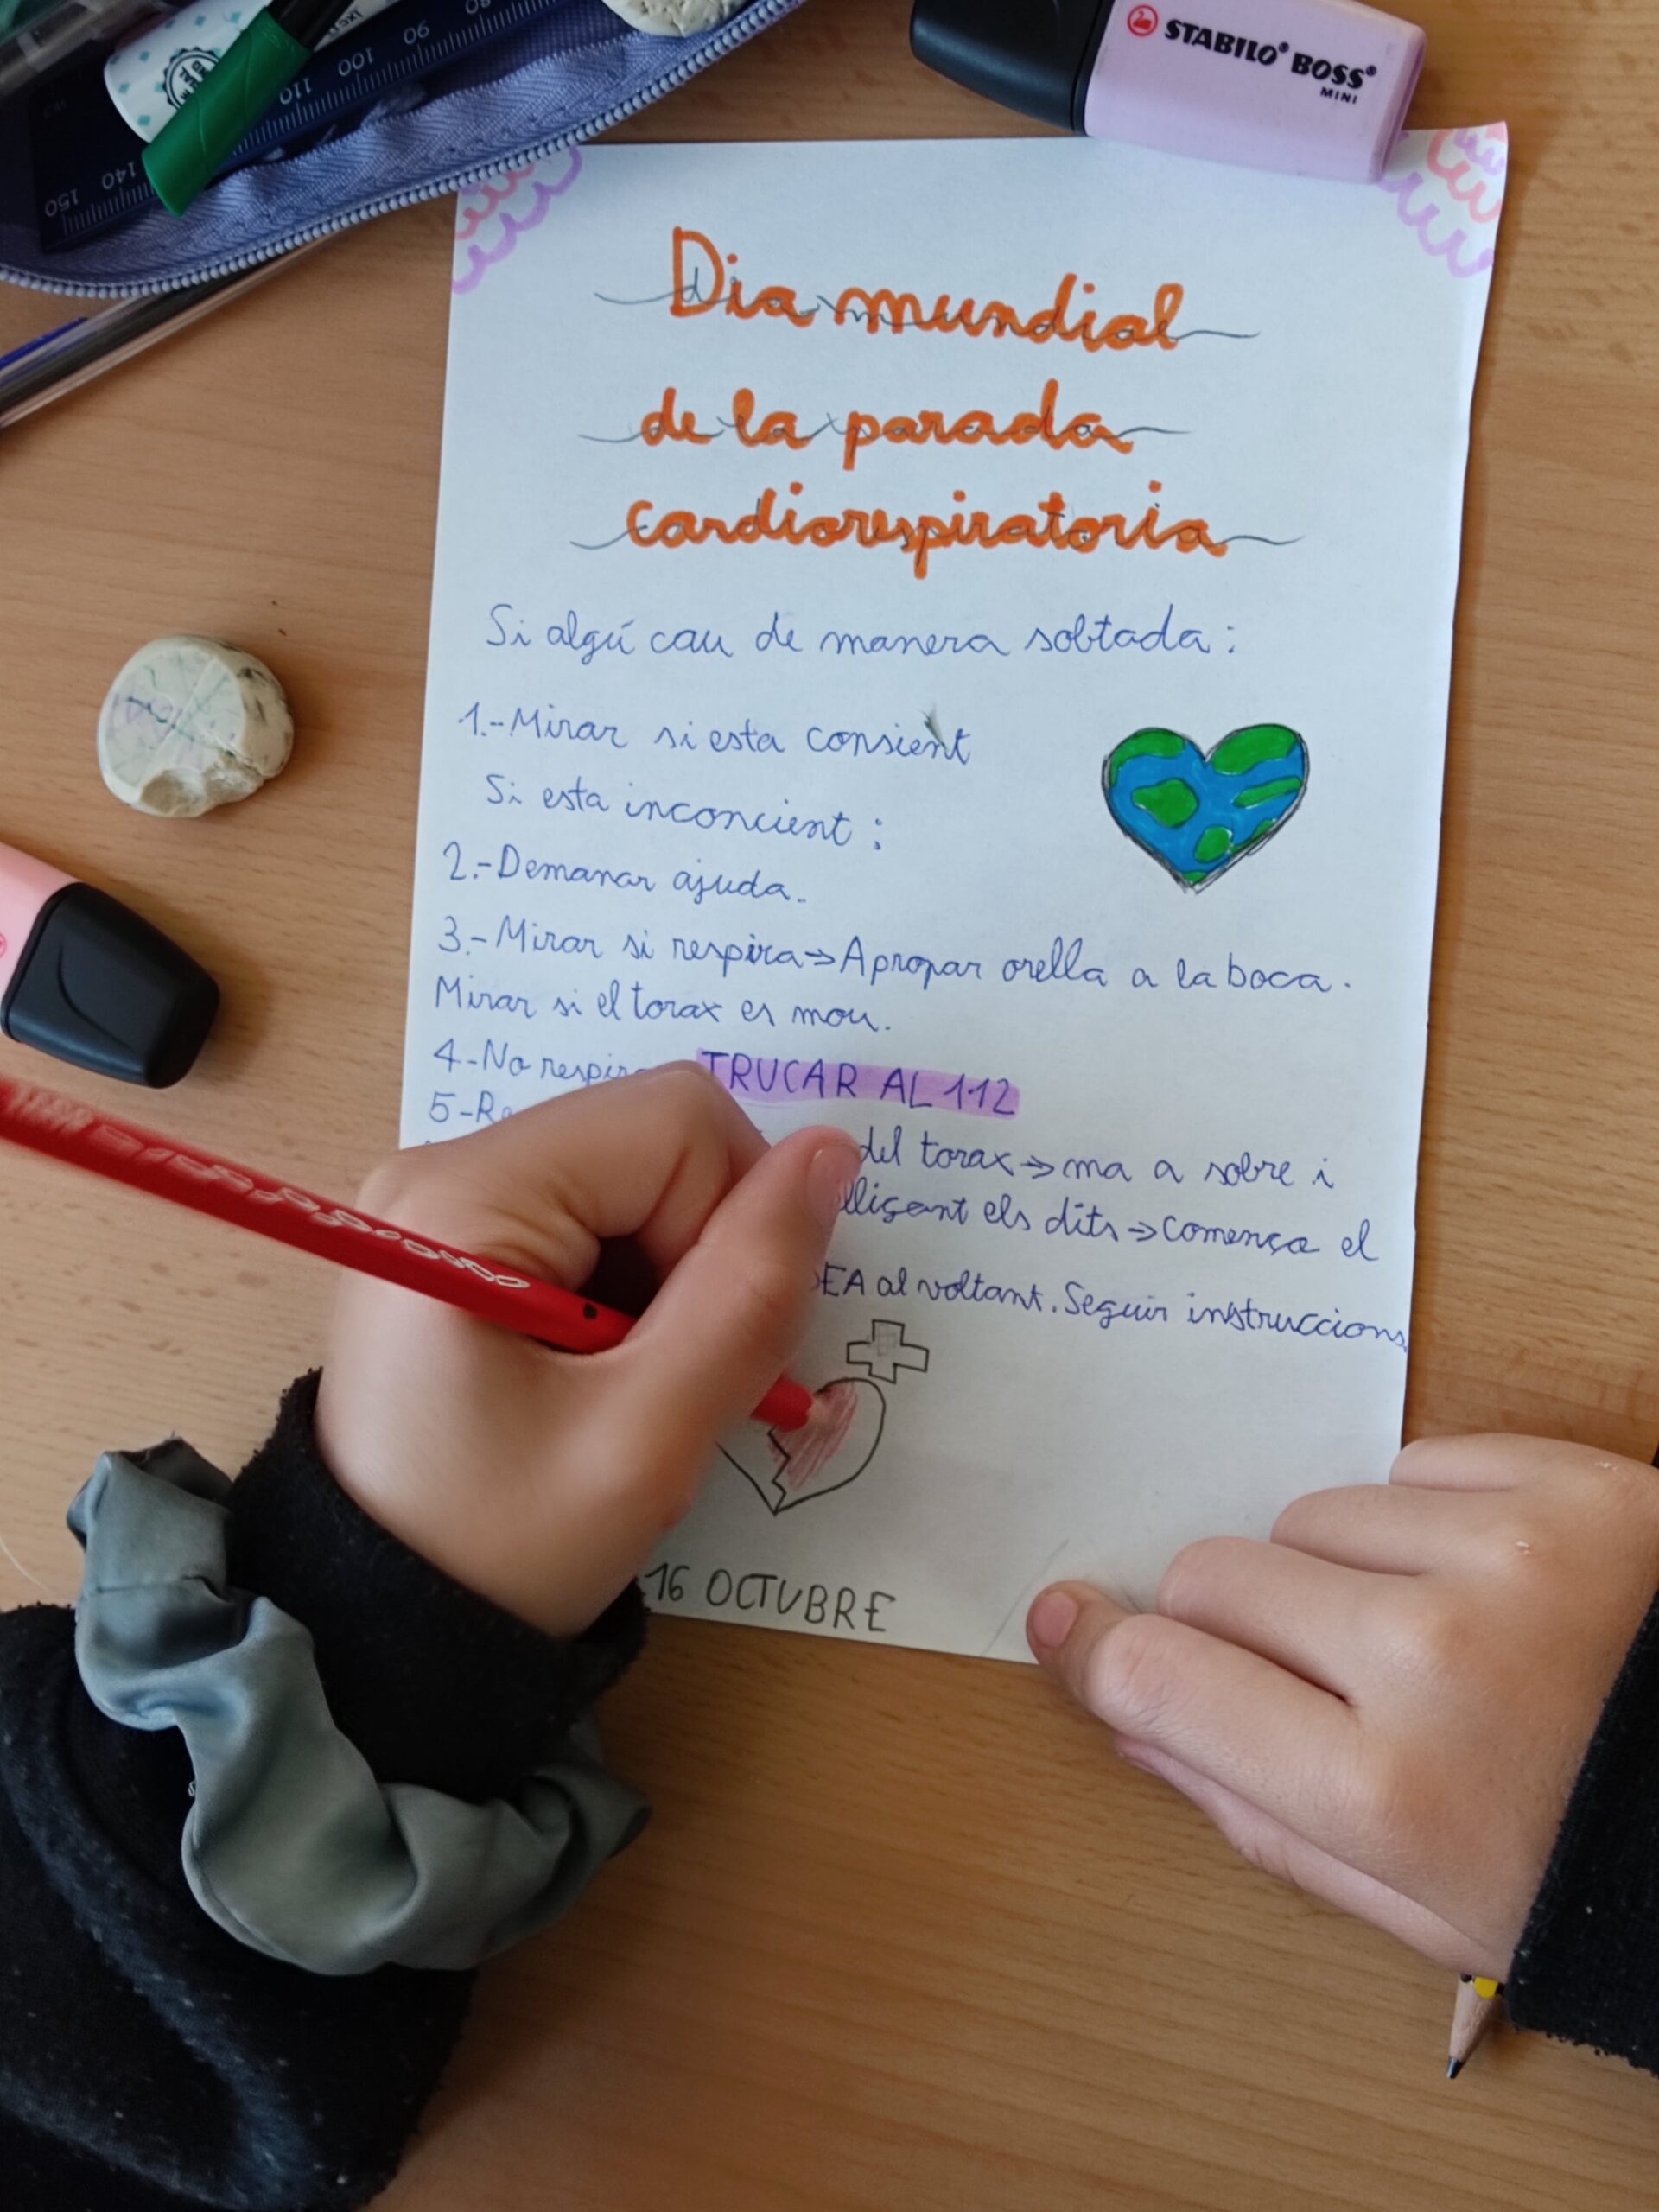 STABILO® BOSS®
MINI
80
90
100
110
140
150
Dia mundial
de la parada
cardiorespiratoria
Si algú cau de manera sobtada:
1.-Mirar si esta consient
Si esta inconcient:
2.-Demanar ajuda.
3.-Mirar si respira→Apropar orella a la boca.
Mirar si el torax es mou.
4-No TRUCAR AL 112
del torax→ma a sobre i
els dits→Comença el
DEA al voltant. Seguir instruccions.
16 OCTUBRE